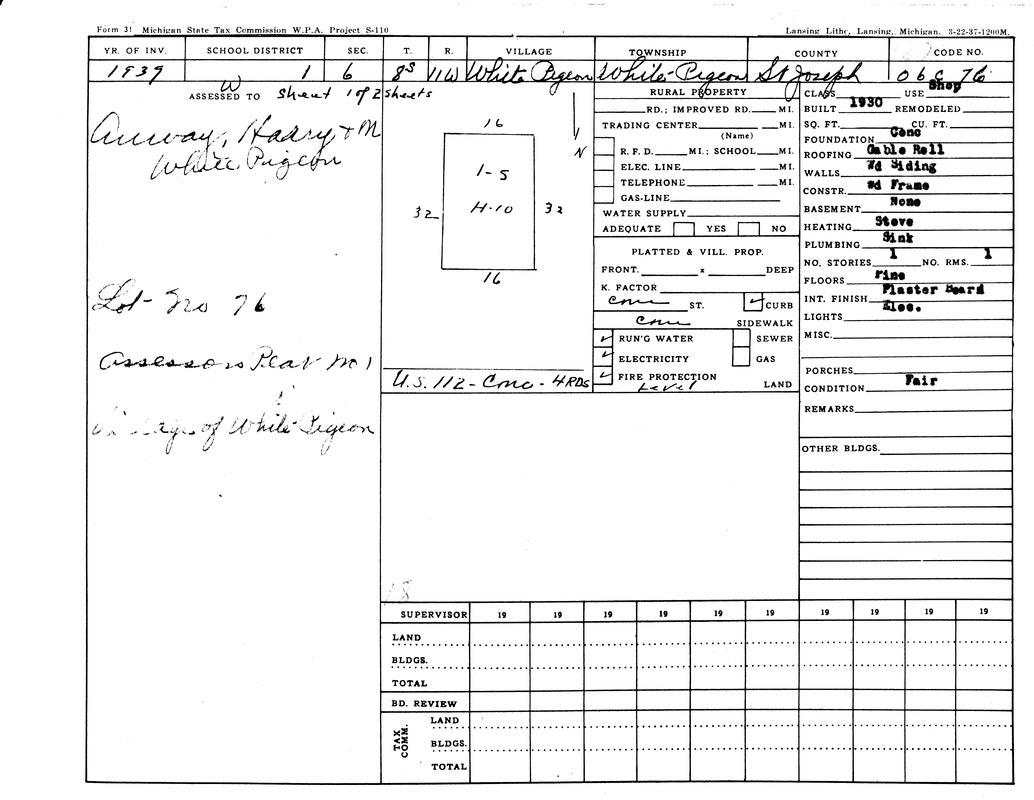 Form 31 Michigan State Tax Commission W.P.A. Project S-110
Lansing Litho, Lansing, Michigan. 3-22-37-1200M.
YR. OF INV. SCHOOL DISTRICT SEC. T. R. VILLAGE TOWNSHIP COUNTY CODE NO.
1939 1 6 8S 11W White Pigeon White-Pigeon St Joseph 06C 76
W
ASSESSED TO Sheet 1 of 2 sheets
Anway, Harry + M
White Pigeon
Lot- No 76
Assessors Plat No 1
Village of White Pigeon
16
1-5
32 H-10 32
16
N
U.S. 112 - Conc - 4 RDS
RURAL PROPERTY
RD.; IMPROVED RD. MI.
TRADING CENTER MI.
(Name)
R. F. D. MI.; SCHOOL MI.
ELEC. LINE MI.
TELEPHONE MI.
GAS-LINE
WATER SUPPLY
ADEQUATE YES NO
PLATTED & VILL. PROP.
FRONT. x DEEP
K. FACTOR
Conc ST. ✓ CURB
Conc SIDEWALK
✓ RUN'G WATER SEWER
✓ ELECTRICITY GAS
✓ FIRE PROTECTION
Level LAND
CLASS USE Shop
BUILT 1930 REMODELED
SQ. FT. CU. FT.
FOUNDATION Conc
ROOFING Gable Roll
WALLS Wd Siding
CONSTR. Wd Frame
BASEMENT None
HEATING Stove
PLUMBING Sink
NO. STORIES 1 NO. RMS. 1
FLOORS Pine
INT. FINISH Plaster Board
LIGHTS Elec.
MISC.
PORCHES
CONDITION Fair
REMARKS
OTHER BLDGS.
18
SUPERVISOR 19 19 19 19 19 19 19 19 19 19
LAND
BLDGS.
TOTAL
BD. REVIEW
TAX COMM.
LAND
BLDGS.
TOTAL